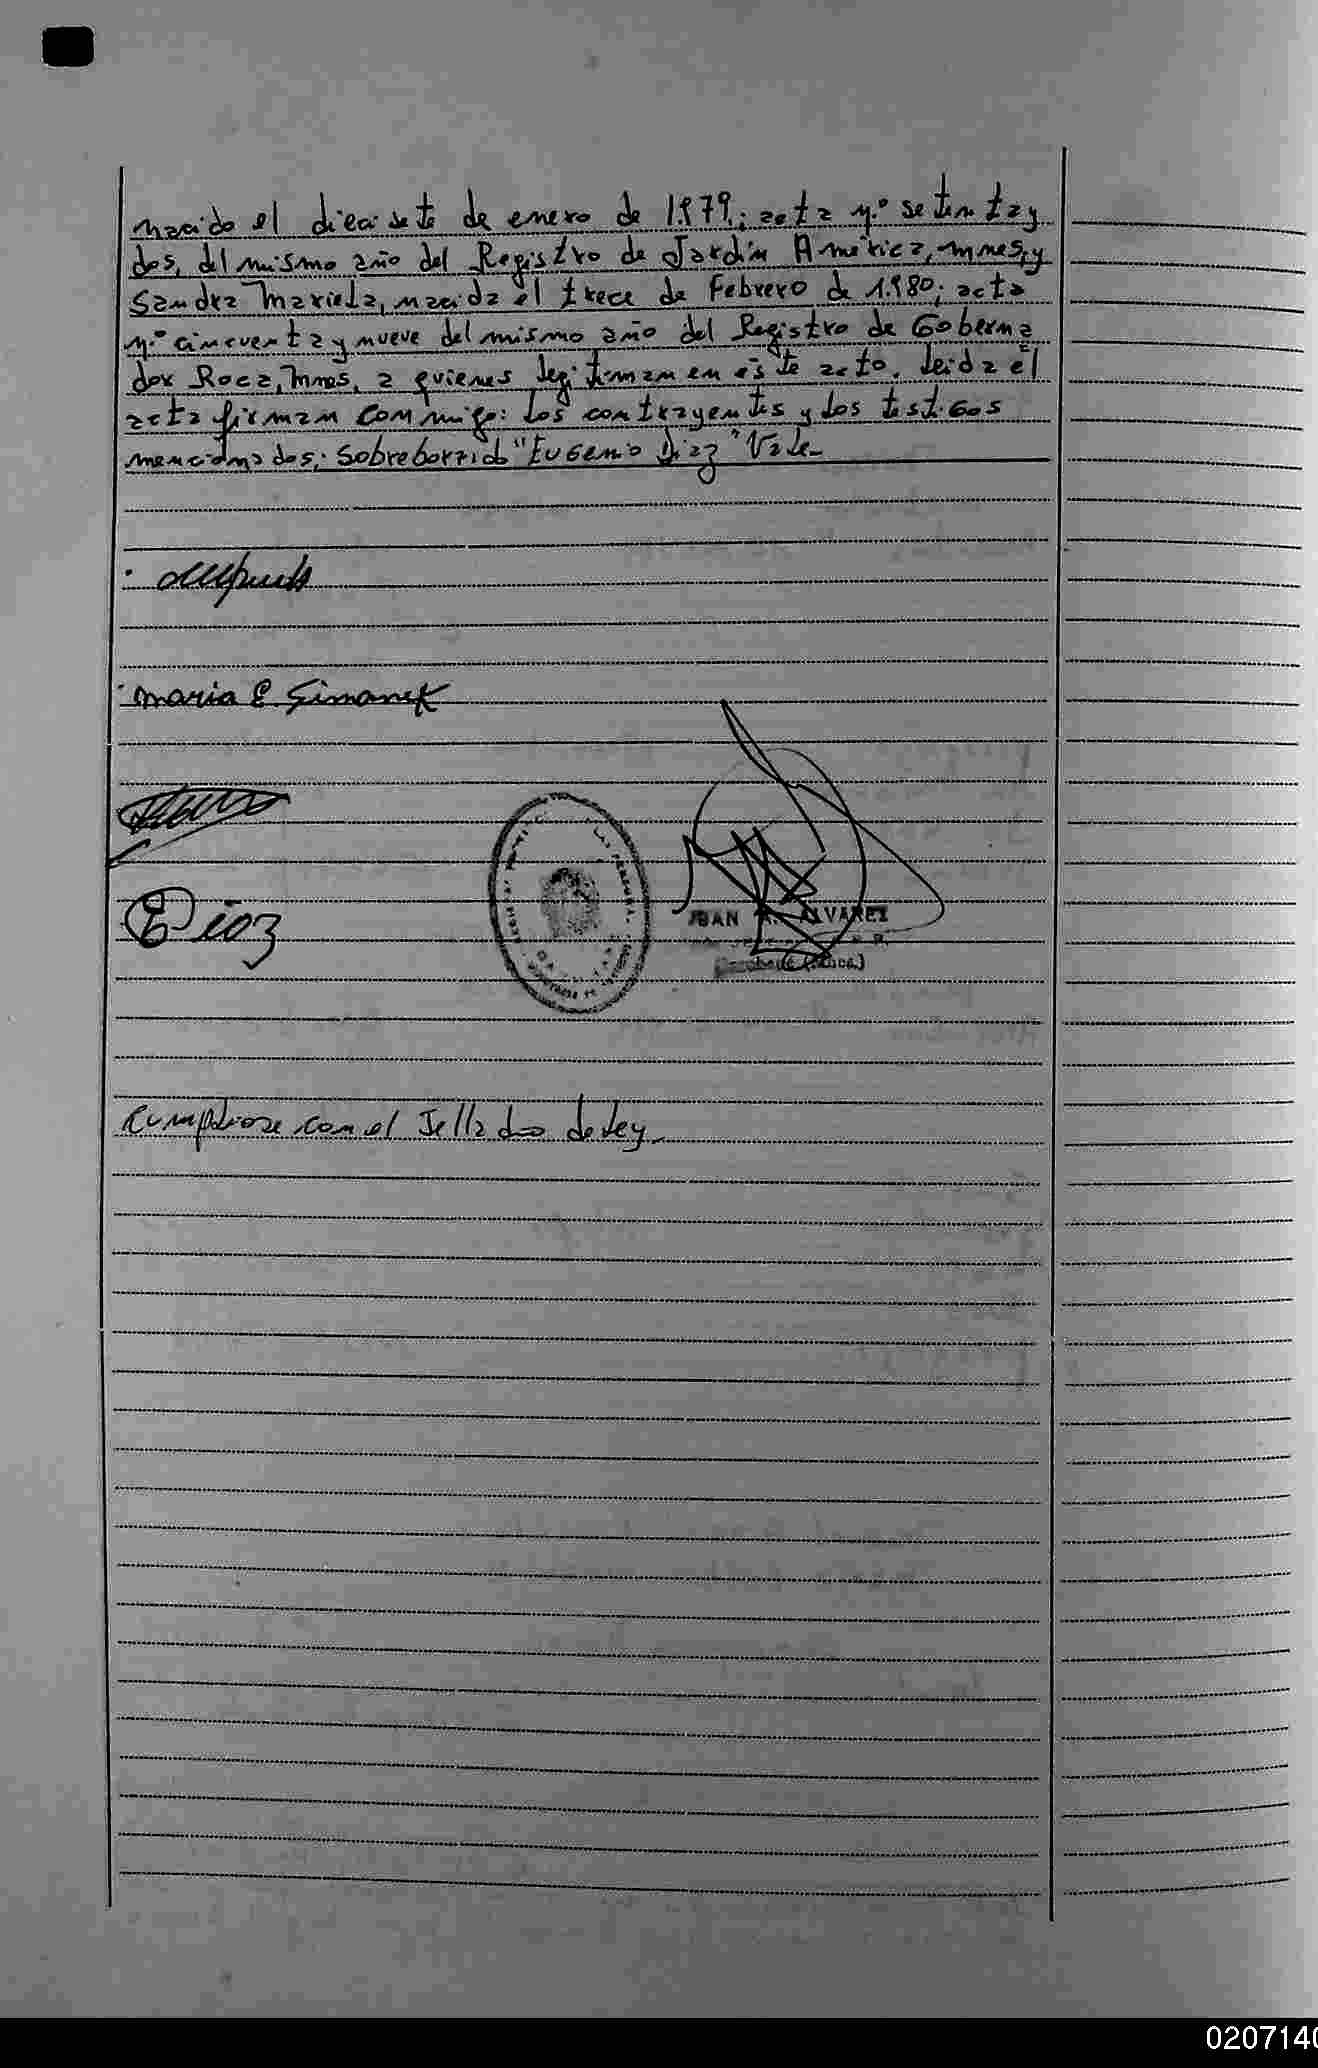 nacido el diecisete de enero de 1.979; acta n.º setentay
dos, del mismo año del Registro de Jardín América, mnes, y
Sandra Mariela, nacida el trece de Febrero de 1.980; acta
n.º cincuenta y nueve del mismo año del Registro de Goberna
dor Roca, mnes, a quienes legitiman en éste acto. leida el
acta firman conmigo: los contrayentes y los testigos
mencionados; sobreborrado "Eugenio Diaz" Vale-
maria E. Simanek
E Diaz
JUAN A. ALVAREZ
Cumpliose con el Sellado de ley.
0207140